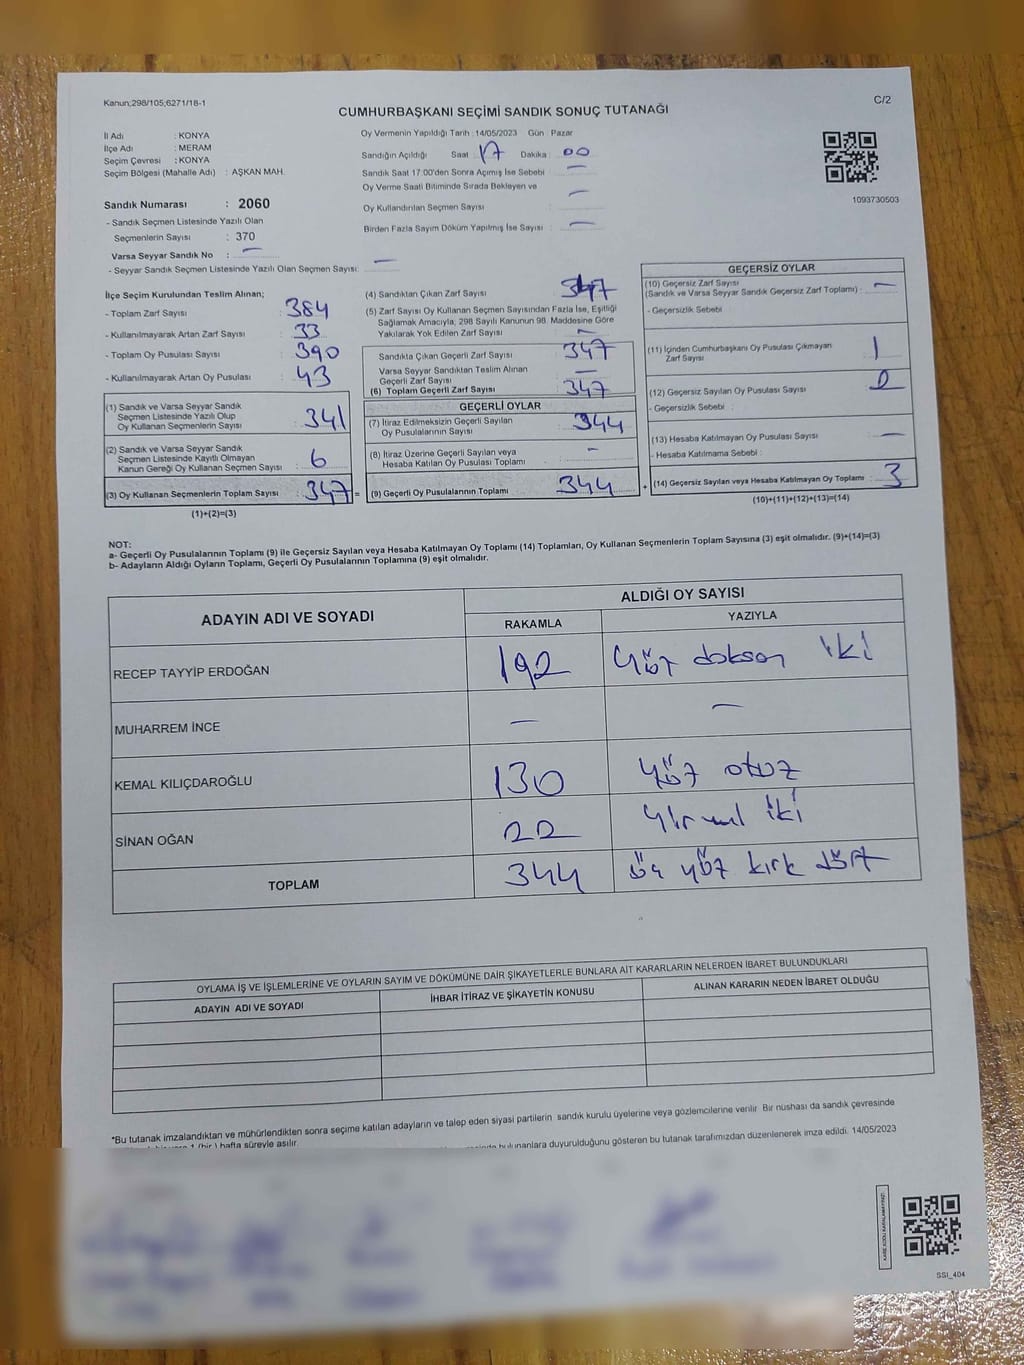 Kanun;298/105;6271/18-1
C/2
CUMHURBAŞKANI SEÇİMİ SANDIK SONUÇ TUTANAĞI
İl Adı : KONYA
İlçe Adı : MERAM
Seçim Çevresi : KONYA
Seçim Bölgesi (Mahalle Adı) : AŞKAN MAH.
Sandık Numarası : 2060
- Sandık Seçmen Listesinde Yazılı Olan
Seçmenlerin Sayısı : 370
Varsa Seyyar Sandık No : —
- Seyyar Sandık Seçmen Listesinde Yazılı Olan Seçmen Sayısı: —
Oy Vermenin Yapıldığı Tarih : 14/05/2023 Gün Pazar
Sandığın Açıldığı Saat 17 Dakika : 00
Sandık Saat 17:00'den Sonra Açılmış İse Sebebi : —
Oy Verme Saati Bitiminde Sırada Bekleyen ve
Oy Kullandırılan Seçmen Sayısı : —
Birden Fazla Sayım Döküm Yapılmış İse Sayısı : —
1093730503
İlçe Seçim Kurulundan Teslim Alınan;
- Toplam Zarf Sayısı : 384
- Kullanılmayarak Artan Zarf Sayısı : 33
- Toplam Oy Pusulası Sayısı : 390
- Kullanılmayarak Artan Oy Pusulası : 43
(1) Sandık ve Varsa Seyyar Sandık
Seçmen Listesinde Yazılı Olup
Oy Kullanan Seçmenlerin Sayısı : 341
(2) Sandık ve Varsa Seyyar Sandık
Seçmen Listesinde Kayıtlı Olmayan
Kanun Gereği Oy Kullanan Seçmen Sayısı : 6
(3) Oy Kullanan Seçmenlerin Toplam Sayısı : 347 =
(1)+(2)=(3)
(4) Sandıktan Çıkan Zarf Sayısı : 347
(5) Zarf Sayısı Oy Kullanan Seçmen Sayısından Fazla İse, Eşitliği
Sağlamak Amacıyla, 298 Sayılı Kanunun 98. Maddesine Göre
Yakılarak Yok Edilen Zarf Sayısı : —
Sandıkta Çıkan Geçerli Zarf Sayısı : 347
Varsa Seyyar Sandıktan Teslim Alınan
Geçerli Zarf Sayısı : —
(6) Toplam Geçerli Zarf Sayısı : 347
GEÇERLİ OYLAR
(7) İtiraz Edilmeksizin Geçerli Sayılan
Oy Pusulalarının Sayısı : 344
(8) İtiraz Üzerine Geçerli Sayılan veya
Hesaba Katılan Oy Pusulası Toplamı : —
(9) Geçerli Oy Pusulalarının Toplamı : 344 +
GEÇERSİZ OYLAR
(10) Geçersiz Zarf Sayısı
(Sandık ve Varsa Seyyar Sandık Geçersiz Zarf Toplamı) : —
- Geçersizlik Sebebi :
(11) İçinden Cumhurbaşkanı Oy Pusulası Çıkmayan
Zarf Sayısı : 1
(12) Geçersiz Sayılan Oy Pusulası Sayısı : 2
- Geçersizlik Sebebi :
(13) Hesaba Katılmayan Oy Pusulası Sayısı : —
- Hesaba Katılmama Sebebi :
(14) Geçersiz Sayılan veya Hesaba Katılmayan Oy Toplamı : 3
(10)+(11)+(12)+(13)=(14)
NOT:
a- Geçerli Oy Pusulalarının Toplamı (9) ile Geçersiz Sayılan veya Hesaba Katılmayan Oy Toplamı (14) Toplamları, Oy Kullanan Seçmenlerin Toplam Sayısına (3) eşit olmalıdır. (9)+(14)=(3)
b- Adayların Aldığı Oyların Toplamı, Geçerli Oy Pusulalarının Toplamına (9) eşit olmalıdır.
ADAYIN ADI VE SOYADI
ALDIĞI OY SAYISI
RAKAMLA YAZIYLA
RECEP TAYYİP ERDOĞAN 192 yüz doksan iki
MUHARREM İNCE — —
KEMAL KILIÇDAROĞLU 130 yüz otuz
SİNAN OĞAN 22 yirmi iki
TOPLAM 344 üç yüz kırk dört
OYLAMA İŞ VE İŞLEMLERİNE VE OYLARIN SAYIM VE DÖKÜMÜNE DAİR ŞİKAYETLERLE BUNLARA AİT KARARLARIN NELERDEN İBARET BULUNDUKLARI
ADAYIN ADI VE SOYADI İHBAR İTİRAZ VE ŞİKAYETİN KONUSU ALINAN KARARIN NEDEN İBARET OLDUĞU
*Bu tutanak imzalandıktan ve mühürlendikten sonra seçime katılan adayların ve talep eden siyasi partilerin sandık kurulu üyelerine veya gözlemcilerine verilir Bir nüshası da sandık çevresinde
1 (bir) hafta süreyle asılır.
bulunanlara duyurulduğunu gösteren bu tutanak tarafımızdan düzenlenerek imza edildi. 14/05/2023
SSI_404